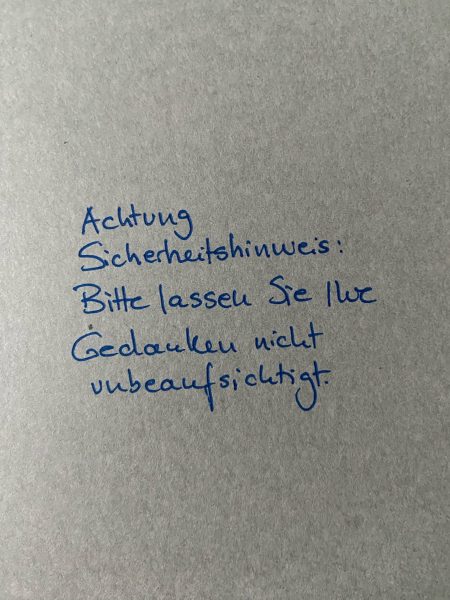 Achtung
Sicherheitshinweis:
Bitte lassen Sie Ihre
Gedanken nicht
unbeaufsichtigt.